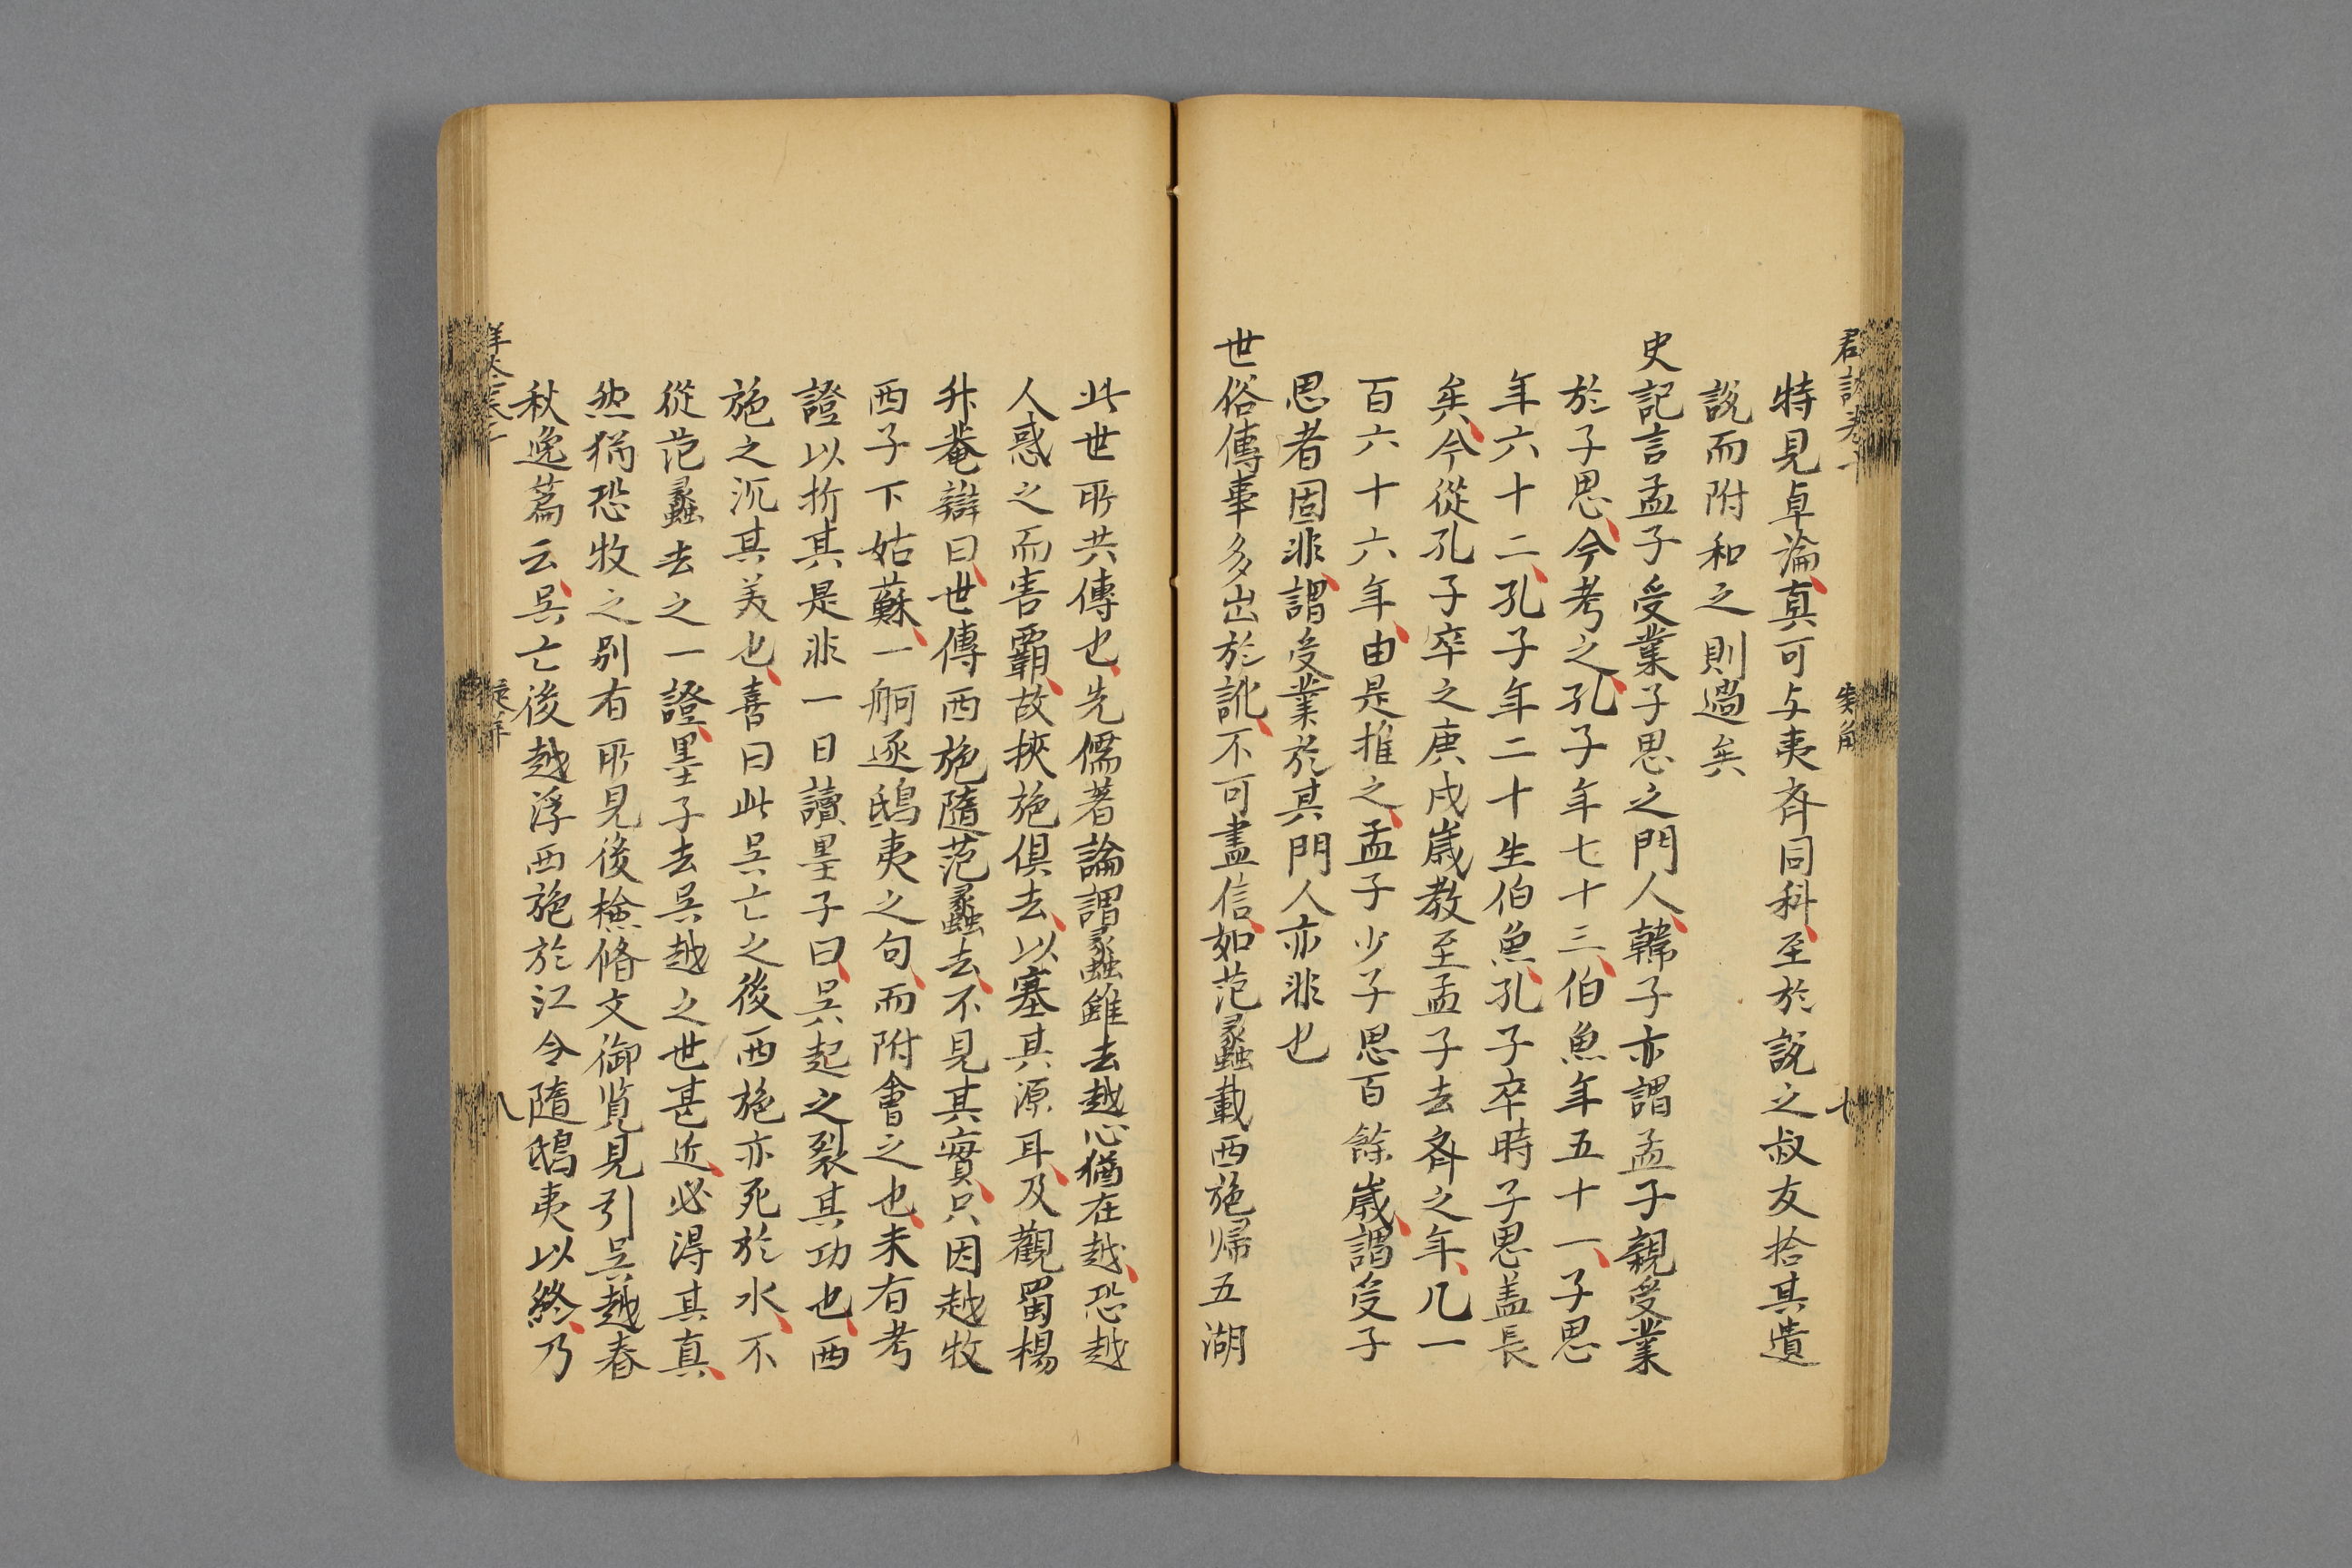 特見卓淪真可与夷斉同科至於說之叔友拾其遺
說而附和之則過矣
史記言孟子受業子思之門人韓子亦謂孟子親受業
於子思今考之孔子年七十三伯魚年五十一子思
年六十二孔子年二十生伯魚孔子卒時子思盖長
矣今從孔子卒之庚戌嵗教至孟子去斉之年凡一
百六十六年由是推之孟子少子思百餘嵗謂受子
思者固非謂受業於其門人亦非也
世俗傳事多出於訛不可盡信如范蠡載西施帰五湖
此世所共傳也先儒著論謂蠡雖去越心猶在越恐越
人惑之而害覇故挾施俱去以塞其源耳及觀蜀楊
升菴辯曰世傳西施隨范蠡去不見其實只因越牧
西子下姑蘇一舸逐鴟夷之句而附會之也未有考
證以折其是非一日讀墨子曰吳起之裂其功也西
施之沉其美也喜曰此吳亡之後西施亦死於水不
從范蠡去之一證墨子去吳越之世甚近必得其真
然猶恐牧之別有所見後檢脩文御覧見引吳越春
秋逸篇云吳亡後越浮西施於江令隨鴟夷以終乃